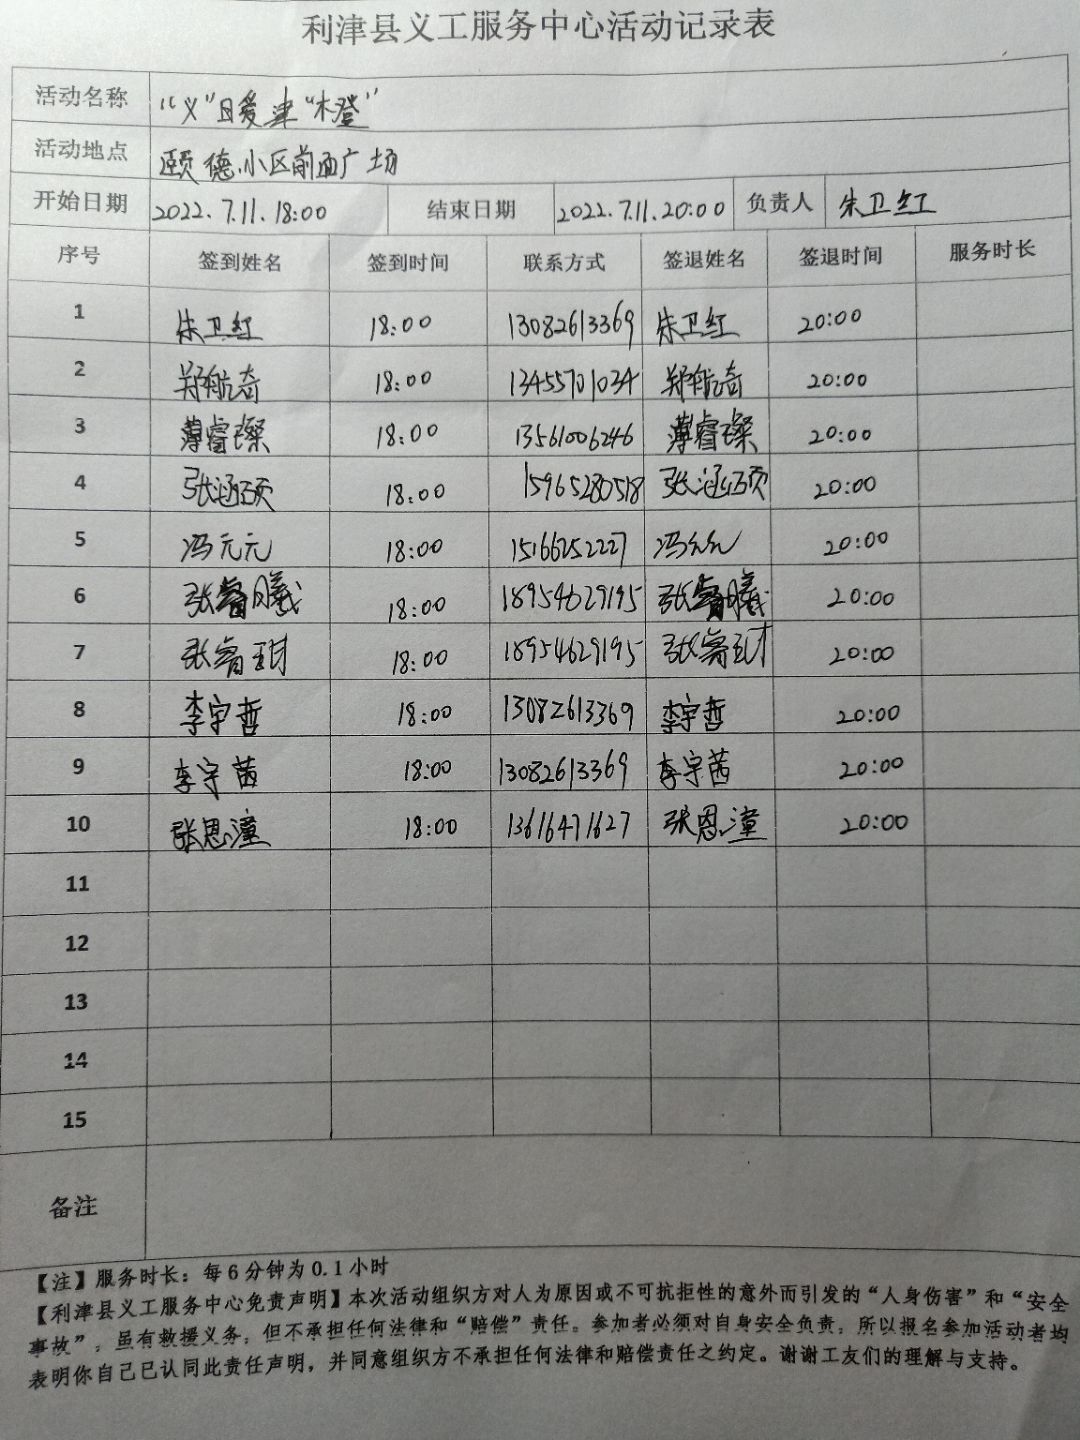 利津县义工服务中心活动记录表
活动名称 “义”日爱津“橙”
活动地点 颐德小区前面广场
开始日期 2022.7.11.18:00 结束日期 2022.7.11.20:00 负责人 朱卫红
序号 签到姓名 签到时间 联系方式 签退姓名 签退时间 服务时长
1 朱卫红 18:00 13082613369 朱卫红 20:00
2 郑航奇 18:00 13455701034 郑航奇 20:00
3 薄睿璨 18:00 13561006246 薄睿璨 20:00
4 张涵硕 18:00 15965280518 张涵硕 20:00
5 冯元元 18:00 15166252227 冯元元 20:00
6 张睿曦 18:00 18954629195 张睿曦 20:00
7 张睿 18:00 18954629195 张睿 20:00
8 李宇哲 18:00 13082613369 李宇哲 20:00
9 李宇茜 18:00 13082613369 李宇茜 20:00
10 张恩潼 18:00 13616471627 张恩潼 20:00
11
12
13
14
15
备注
【注】服务时长：每6分钟为0.1小时
【利津县义工服务中心免责声明】本次活动组织方对人为原因或不可抗拒性的意外而引发的“人身伤害”和“安全
事故”，虽有救援义务，但不承担任何法律和“赔偿”责任。参加者必须对自身安全负责，所以报名参加活动者均
表明你自己已认同此责任声明，并同意组织方不承担任何法律和赔偿责任之约定。谢谢工友们的理解与支持。